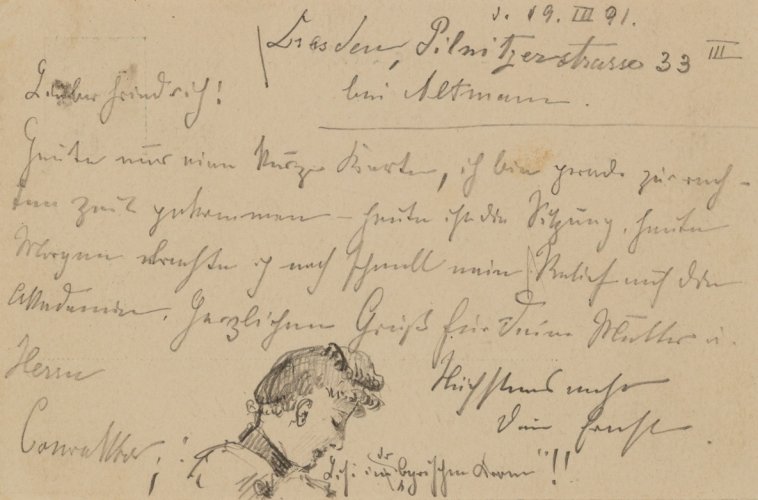 d. 19. III 91.
Dresden, Pilnitzerstrasse 33 III
bei Altmann.
Lieber Friedrich!
Heute nur eine kurze Karte, ich bin gerade zur rech-
ten Zeit gekommen – heute ist die Sitzung, heute
Morgen brachte ich noch schnell mein Relief auf die
Akademie. Herzlichen Gruß für Deine Mutter u.
Herrn
Nächstens mehr
Dein Ernst.
"!!